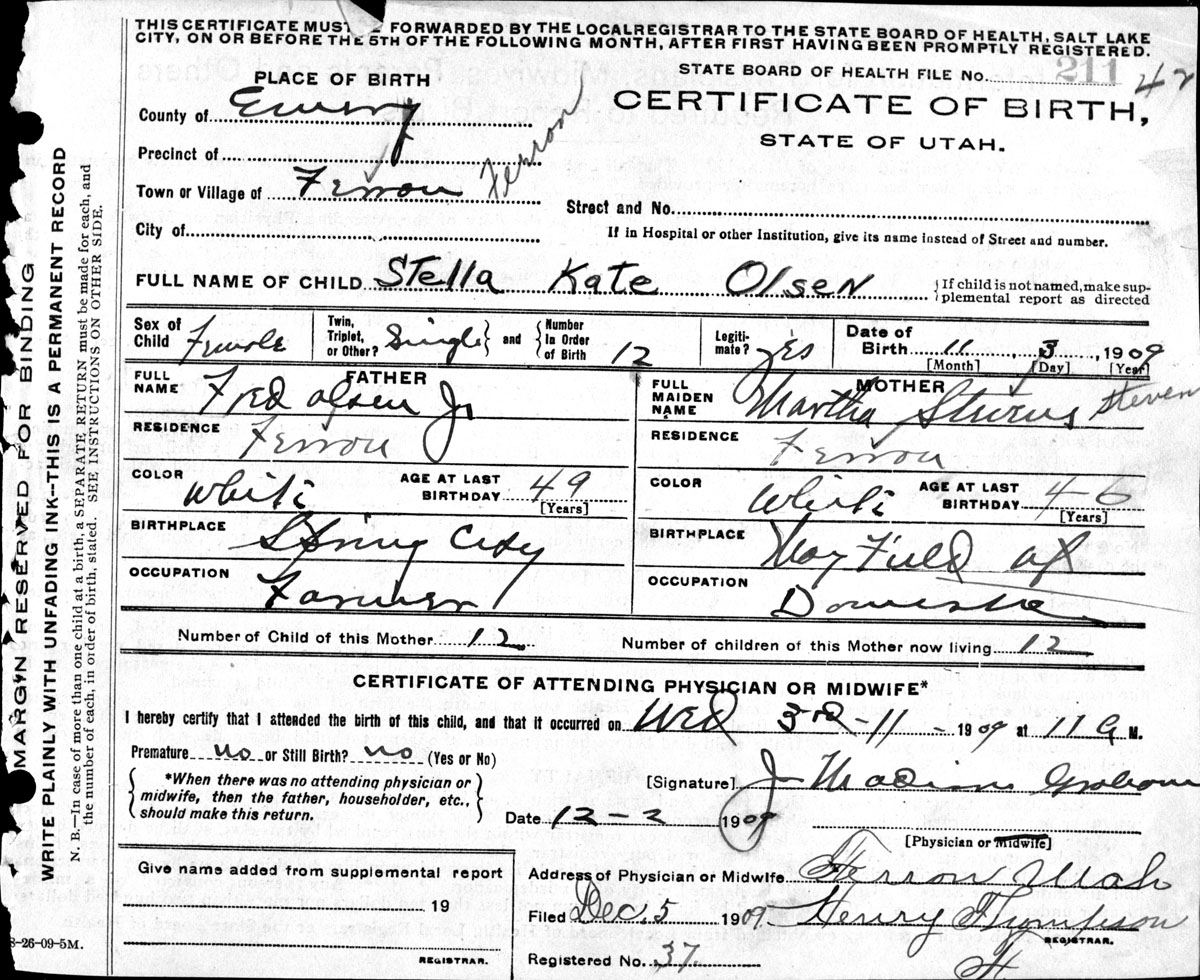 THIS CERTIFICATE MUST BE FORWARDED BY THE LOCALREGISTRAR TO THE STATE BOARD OF HEALTH, SALT LAKE
CITY, ON OR BEFORE THE 5TH OF THE FOLLOWING MONTH, AFTER FIRST HAVING BEEN PROMPTLY REGISTERED.
PLACE OF BIRTH
STATE BOARD OF HEALTH FILE No. 211 42
County of Emery
CERTIFICATE OF BIRTH,
STATE OF UTAH.
Precinct of Ferron
Town or Village of Ferron
Street and No.
City of
If in Hospital or other Institution, give its name instead of Street and number.
FULL NAME OF CHILD Stella Kate Olsen
{If child is not named, make sup-
plemental report as directed
Sex of Child Female
Twin, Triplet, or Other? Single } and { Number In Order of Birth 12
Legiti-mate? yes
Date of Birth 11, 3, 1909
[Month] [Day] [Year]
FATHER
FULL NAME Fred Olsen Jr
RESIDENCE Ferron
COLOR White
AGE AT LAST BIRTHDAY 49
[Years]
BIRTHPLACE Spring City
OCCUPATION Farmer
MOTHER
FULL MAIDEN NAME Martha Stevens Steven
RESIDENCE Ferron
COLOR White
AGE AT LAST BIRTHDAY 46
[Years]
BIRTHPLACE May Field
OCCUPATION Domestic
Number of Child of this Mother 12
Number of children of this Mother now living 12
CERTIFICATE OF ATTENDING PHYSICIAN OR MIDWIFE*
I hereby certify that I attended the birth of this child, and that it occurred on Wed 3rd-11- 1909 at 11 A M.
Premature no or Still Birth? no (Yes or No)
{*When there was no attending physician or
midwife, then the father, householder, etc.,
should make this return.}
[Signature] J
Date 12-2 1909
[Physician or Midwife]
Give name added from supplemental report
19
REGISTRAR.
Address of Physician or Midwife. Ferron Utah
Filed Dec. 5 1909 Henry Thompson
REGISTRAR.
Registered No. 37
8-26-09-5M.
MARGIN RESERVED FOR BINDING
WRITE PLAINLY WITH UNFADING INK--THIS IS A PERMANENT RECORD
N. B.—In case of more than one child at a birth, a SEPARATE RETURN must be made for each, and
the number of each, in order of birth, stated. SEE INSTRUCTIONS ON OTHER SIDE.